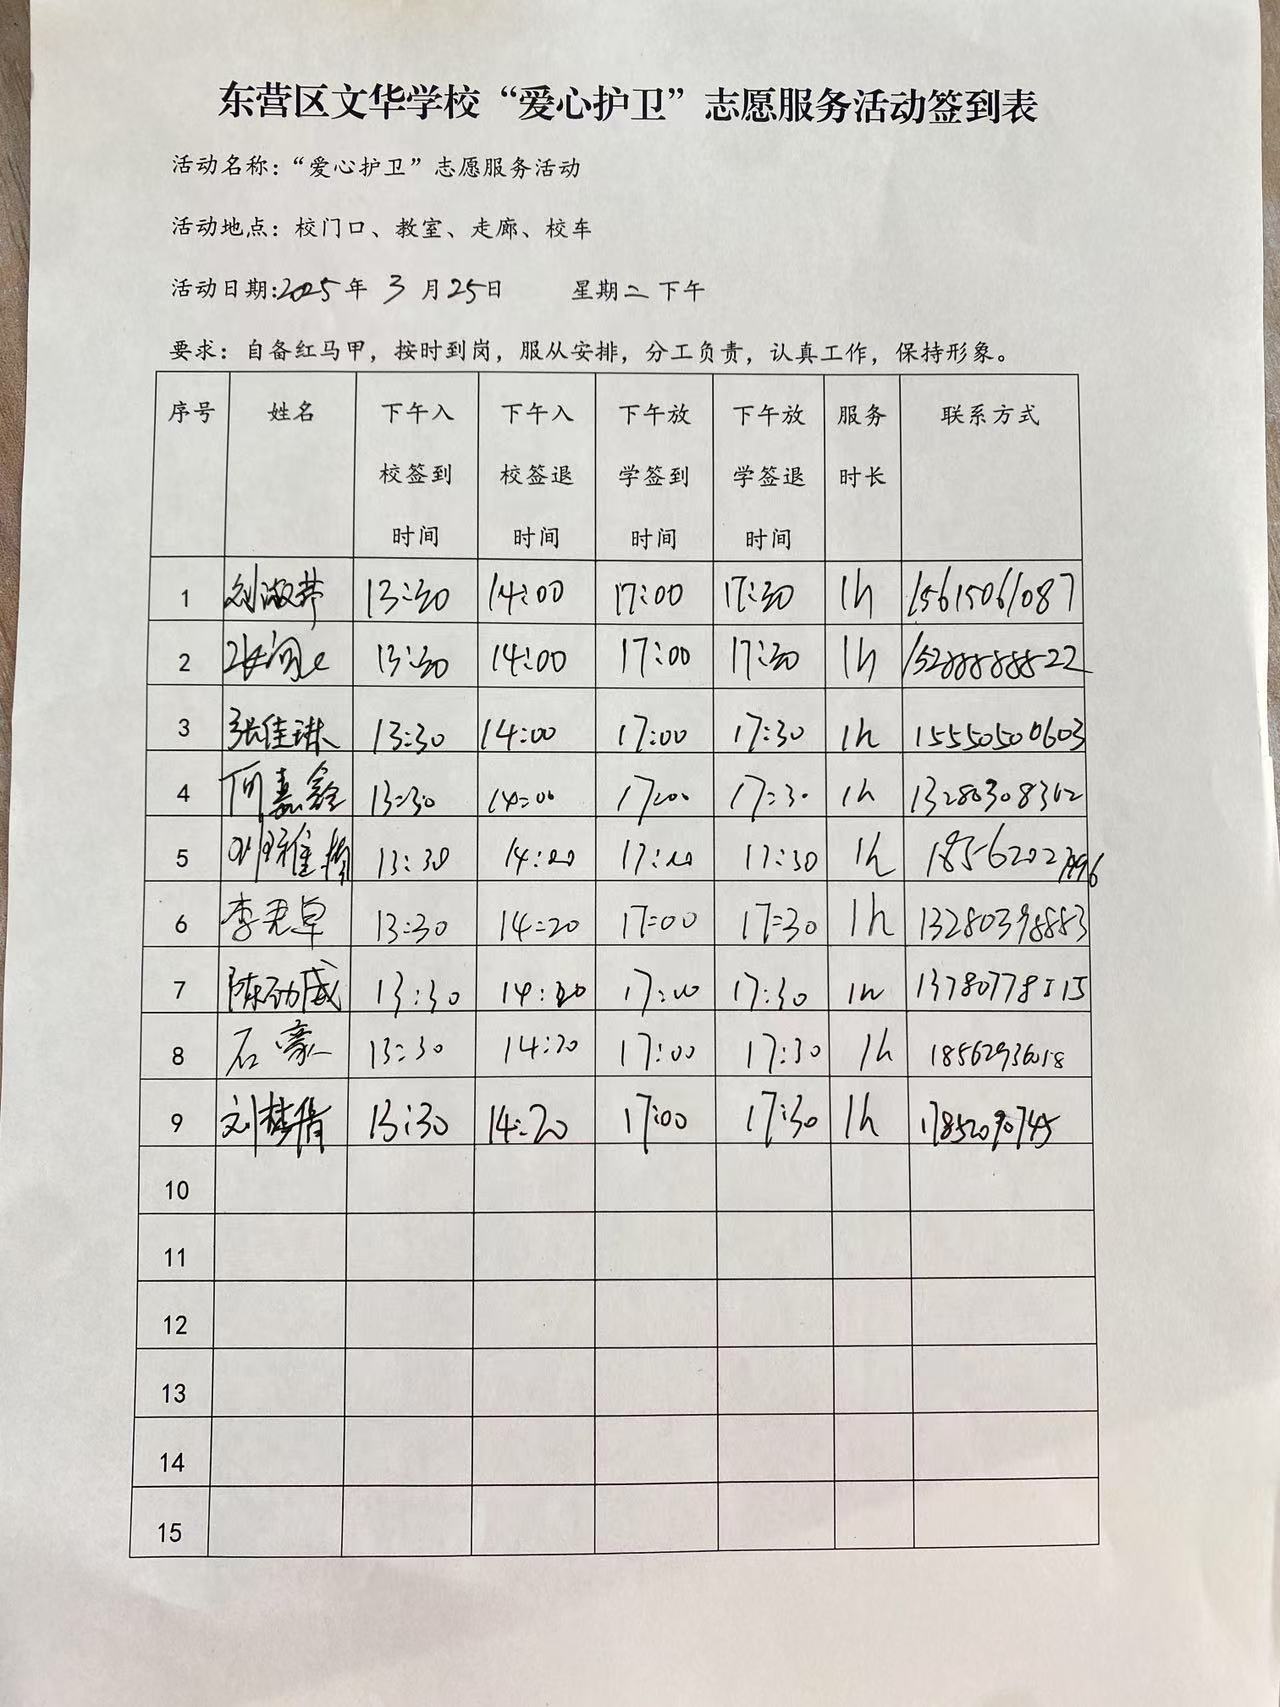 东营区文华学校“爱心护卫”志愿服务活动签到表
活动名称：“爱心护卫”志愿服务活动
活动地点：校门口、教室、走廊、校车
活动日期:2025年 3 月25日 星期二 下午
要求：自备红马甲，按时到岗，服从安排，分工负责，认真工作，保持形象。
序号 姓名 下午入校签到时间 下午入校签退时间 下午放学签到时间 下午放学签退时间 服务时长 联系方式
1 13:30 14:00 17:00 17:30 1h 15615061087
2 13:30 14:00 17:00 17:30 1h
3 张佳琳 13:30 14:00 17:00 17:30 1h 15550500603
4 何嘉鑫 13:30 14:00 17:00 17:30 1h 13280308302
5 13:30 17:30 1h
6 李君卓 13:30 14:20 17:00 17:30 1h 13280398883
7 陈劲威 13:30 14:20 17:00 17:30 1h
8 石豪 13:30 14:20 17:00 17:30 1h 18562936018
9 刘梦倩 13:30 14:20 17:00 17:30 1h
10
11
12
13
14
15